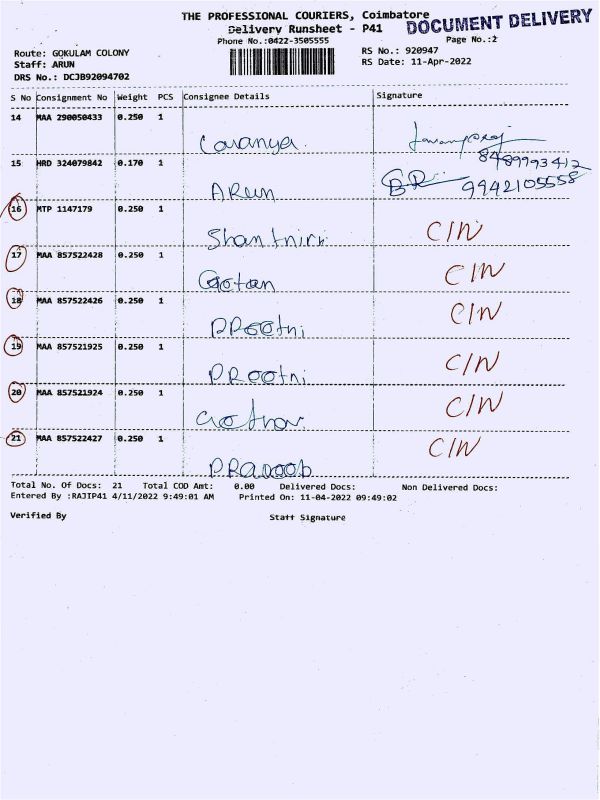 THE PROFESSIONAL COURIERS, Coimbatore
DOCUMENT DELIVERY
Delivery Runsheet - P41
Phone No.:0422-3505555
Page No.:2
Route: GOKULAM COLONY
RS No.: 920947
Staff: ARUN
RS Date: 11-Apr-2022
DRS No.: DCJB92094702
S No Consignment No Weight PCS Consignee Details Signature
14 MAA 290050433 0.250 1
Lavanya
8489993412
15 HRD 324079842 0.170 1
ARUN 9942105558
16 MTP 1147179 0.250 1
C/N
17 MAA 857522428 0.250 1
C/N
18 MAA 857522426 0.250 1
C/N
19 MAA 857521925 0.250 1
C/N
20 MAA 857521924 0.250 1
C/N
21 MAA 857522427 0.250 1
C/N
Total No. Of Docs: 21 Total COD Amt: 0.00 Delivered Docs: Non Delivered Docs:
Entered By :RAJIP41 4/11/2022 9:49:01 AM Printed On: 11-04-2022 09:49:02
Verified By Staff Signature